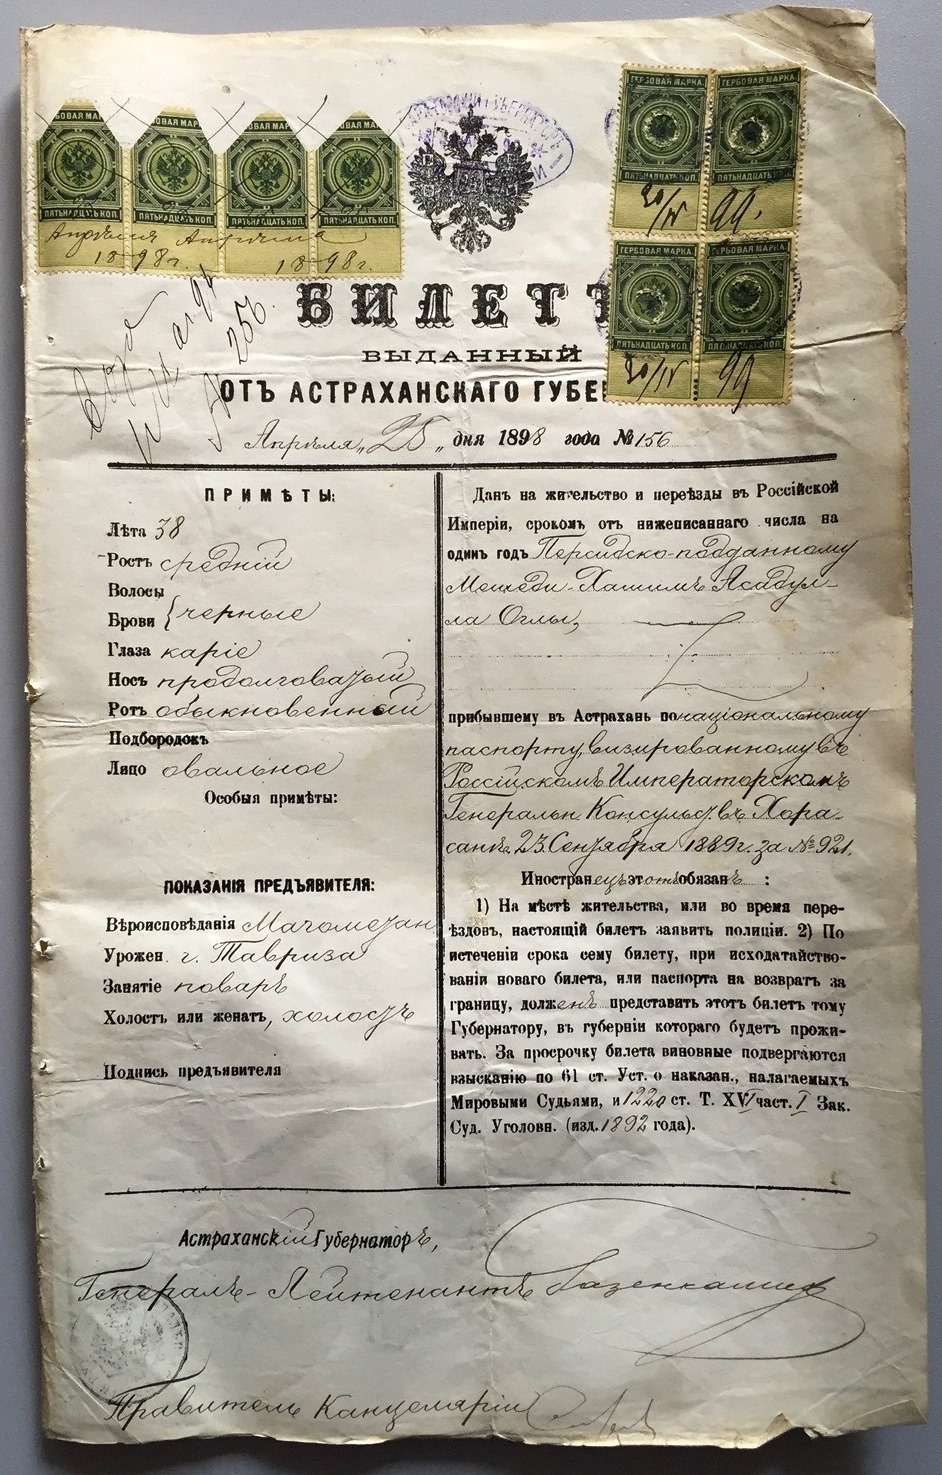 ГЕРБОВАЯ МАРКА. ГЕРБОВАЯ МАРКА.
ПЯТЬНАДЦАТЬ КОП. ПЯТЬНАДЦАТЬ КОП.
20/IV 99.
ГЕРБОВАЯ МАРКА. ГЕРБОВАЯ МАРКА.
ПЯТЬНАДЦАТЬ КОП. ПЯТЬНАДЦАТЬ КОП.
20/IV 99
ПЯТЬНАДЦАТЬ КОП. ПЯТЬНАДЦАТЬ КОП. ПЯТЬНАДЦАТЬ КОП. ПЯТЬНАДЦАТЬ КОП.
Апрѣля Апрѣля
1898г. 1898г.
№ 256.
БИЛЕТЪ
ВЫДАННЫЙ
ОТЪ АСТРАХАНСКАГО ГУБЕ
Апрѣля „25„ дня 1898 года №156
ПРИМѢТЫ:
Лѣта 38
Ростъ средній
Волосы
Брови } черные
Глаза каріе
Носъ продолговатый
Ротъ обыкновенный
Подбородокъ
Лицо овальное
Особыя примѣты:
ПОКАЗАНІЯ ПРЕДЪЯВИТЕЛЯ:
Вѣроисповѣданія Магометан
Урожен. г. Тавриза
Занятіе поваръ
Холостъ или женатъ, холостъ
Подпись предъявителя
Данъ на жительство и переѣзды въ Россійской
Имперіи, срокомъ отъ нижеписаннаго числа на
одинъ годъ Персидско-подданному
Мешеди-Хашимъ Асадул-
ла Оглы,
прибывшему въ Астрахань по національному
паспорту, визированному въ
Россійскомъ Императорскомъ
Генеральн. Консульст. въ Хора-
санѣ 23 Сентября 1889г. за №921.
Иностранецъ этотъ обязанъ :
1) На мѣстѣ жительства, или во время пере-
ѣздовъ, настоящій билетъ заявить полиціи. 2) По
истеченіи срока сему билету, при исходатайство-
ваніи новаго билета, или паспорта на возвратъ за
границу, долженъ представить этотъ билетъ тому
Губернатору, въ губерніи котораго будетъ прожи-
вать. За просрочку билета виновные подвергаются
взысканію по 61 ст. Уст. о наказан., налагаемыхъ
Мировыми Судьями, и 1220 ст. Т. XVI част. I Зак.
Суд. Уголовн. (изд. 1892 года).
Астраханскій Губернаторъ,
Генералъ-Лейтенантъ Газенкампф
Правитель Канцеляріи